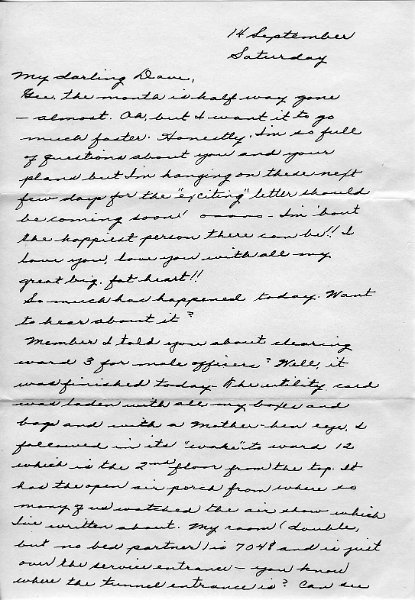 14 September
Saturday
My darling Dave,
Gee, the month is half way gone
- almost. Oh, but I want it to go
much faster. Honestly, I'm so full
of questions about you and your
plans but I'm hanging on these next
few days for the "exciting" letter should
be coming soon! ooooo - I'm 'bout
the happiest person there can be!! I
love you, love you with all my
great big, fat heart!!
So much has happened today. Want
to hear about it?
Member I told you about clearing
ward 3 for male officers? Well, it
was finished today - the utility card
was laden with all my boxes and
bags and with a Mother-hen eye, I
followed in its "wake" to ward 12
which is the 2nd floor from the top. It
has the open air porch from where so
many of us watched the air show which
I've written about. My room (double,
but no bed partner) is 7048 and is just
over the service entrance - you know
where the tunnel entrance is? Can see